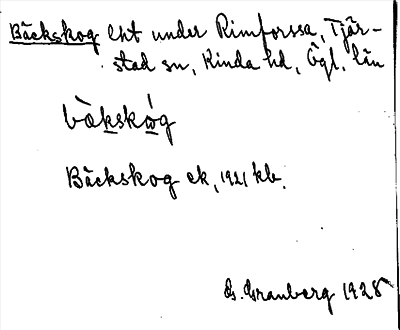 Bäckskog lht under Rimforssa, Tjär-
stad sn, Kinda hd, Ögl. län
Bäckskog ek, 1921 kb.
G. Granberg 1928